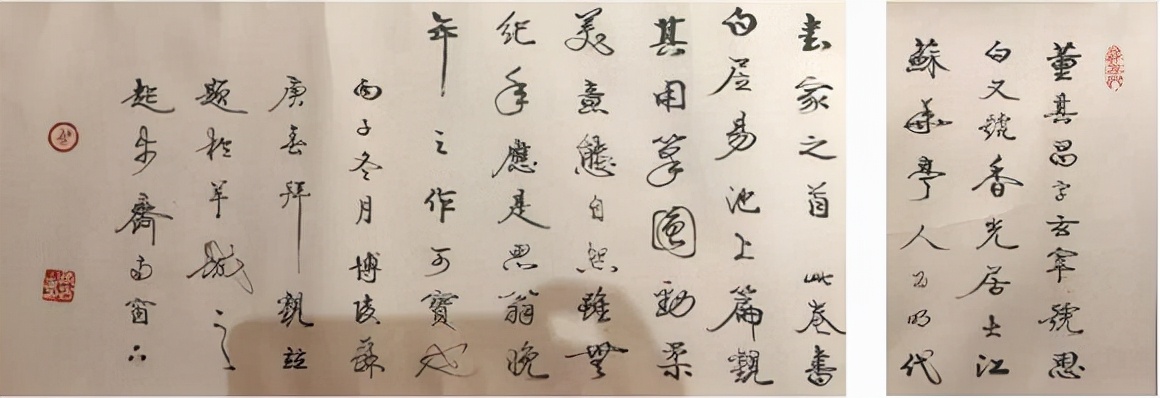 董其昌字玄宰號思
白又號香光居士江
蘇華亭人為明代
書家之首此卷書
白居易池上篇觀
其用筆圓勁柔
美意態自然雖無
紀年應是思翁晚
年之作可寶也
丙子冬月博陵蘇
庚春拜觀並
題於羊城之
起步齋南窗下